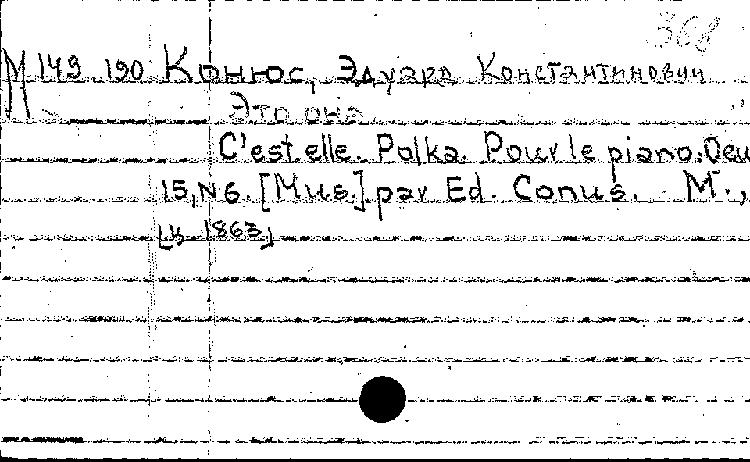 368
М 149 190 Конюс, Эдуард Константинович
Это она.
C'est elle. Polka. Pour le piano. Oeu
15, N6. [Mus.] par Ed. Conus. M.,
[ц. 1863]